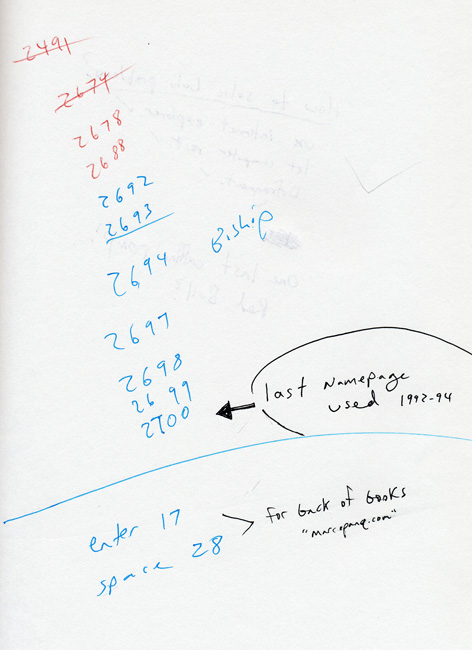 2491
2674
2678
2688
2692
2693
2694 Biship
2697
2698
2699
2700
last Namepage
used 1992-94
enter 17
space 28
for back of books
"marcopanq.com"